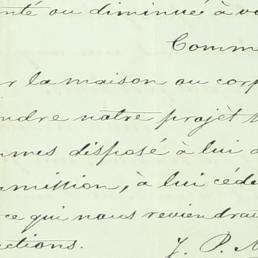 nté ou diminué à vo
Comme
r la maison ou corp
ndre notre projet
mes disposé à lui
mission, à lui céde
ce qui nous reviendrai
ctions. J. P.